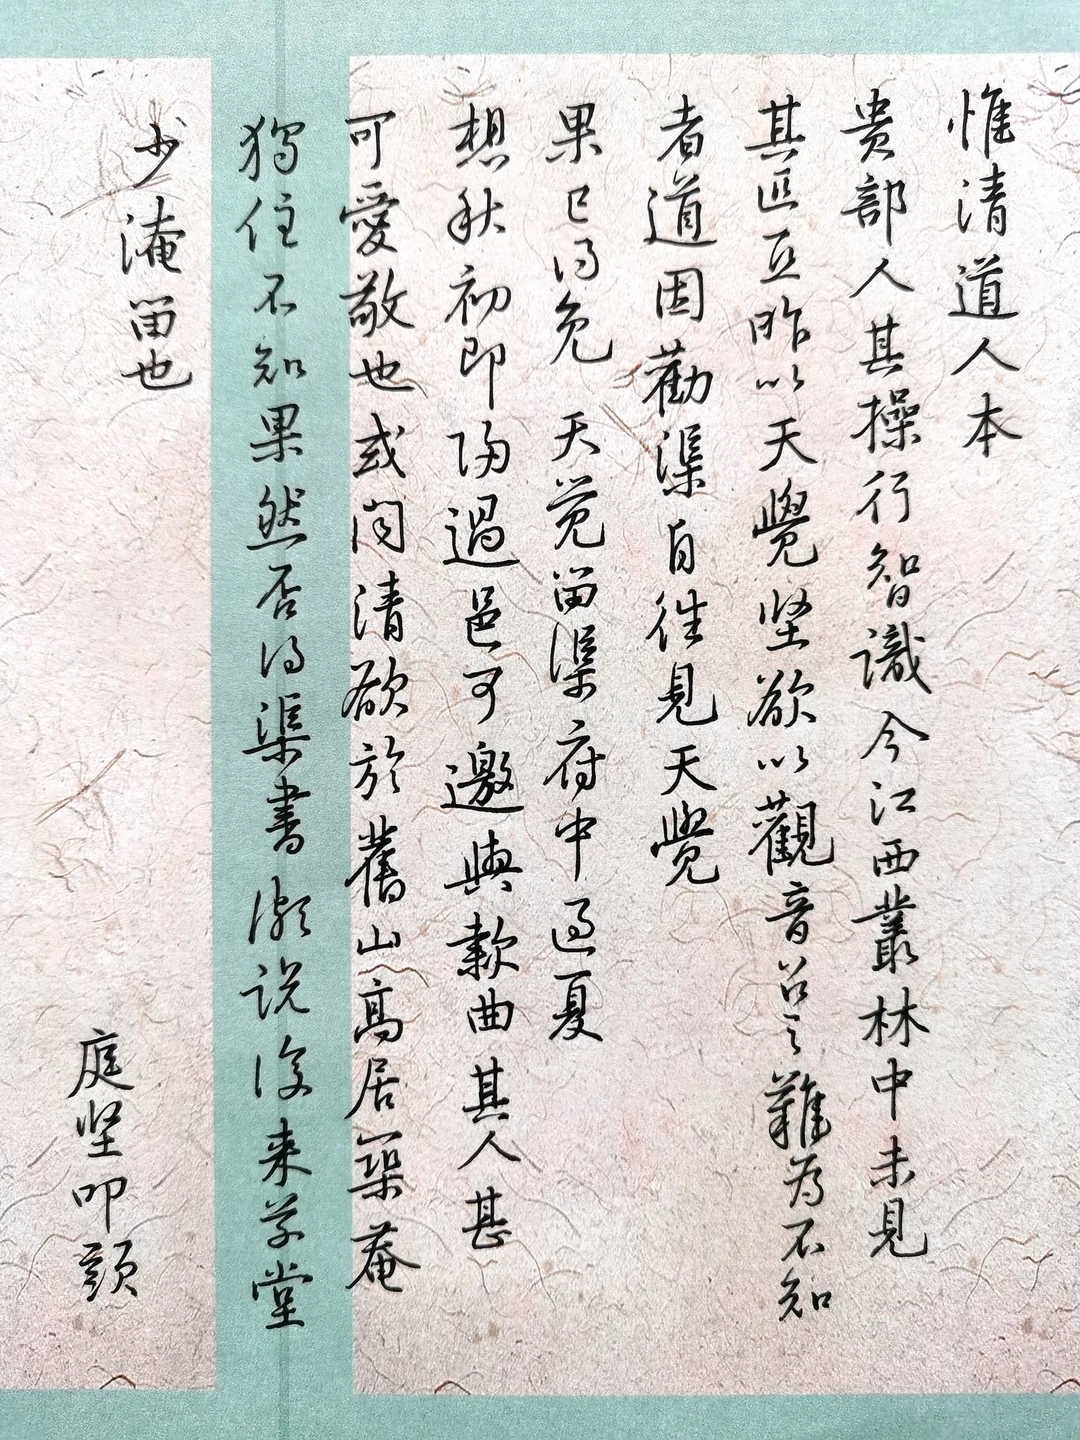 惟清道人本
贵部人其操行智識今江西叢林中未見
其匹亞昨以天覺坚欲以觀音召之難為不知
者道因勸渠自往見天覺
果已得免 天觉留渠府中過夏
想秋初即歸過邑可邀與款曲其人甚
可愛敬也或問清欲於舊山高居築菴
獨住不知果然否得渠書頗説後来草堂
少淹留也
庭坚叩頭